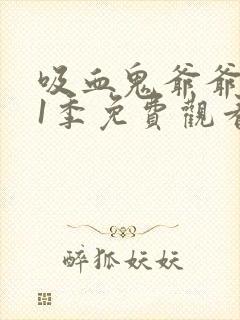 吸血鬼爺爺
1季免費觀看
醉狐妖妖